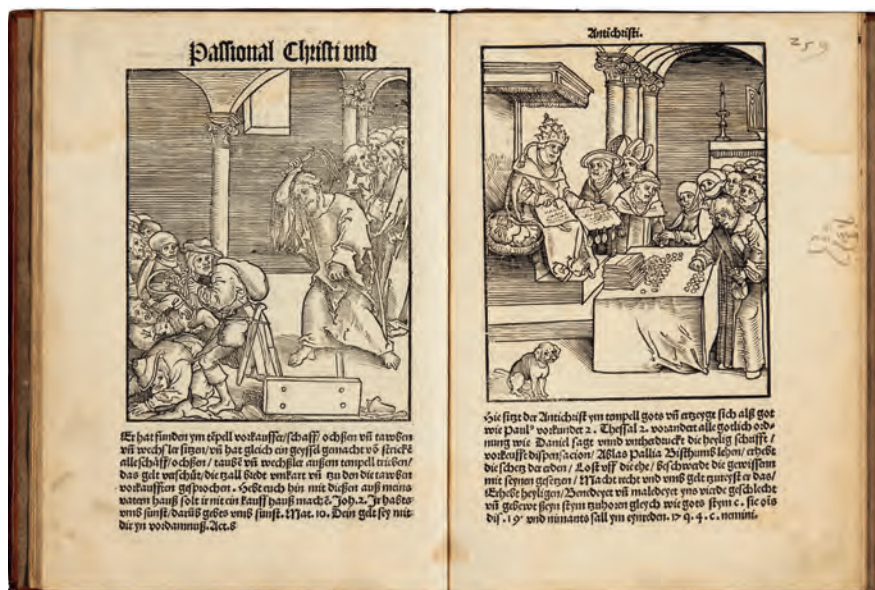 Passional Christi und
Er hat funden ym tēpell vorkauffer/schaff/ ochßen vñ tawben
vñ wechsler sitzen/vñ hat gleich ein geyssel gemacht vō stricke
alle schaff/ ochßen/ taubē vñ wechßler außem tempell trieben/
das gelt verschüt/die zall bredt umkart vñ tzu den die tawben
vorkaufften gesprochen. Hebt euch hin mit dießen auß meins
vatern hauß solt ir nit ein kauff hauß machē. Joh. 2. Ir habts
umb sunst/darūb gebts umb sunst. Mat. 10. Dein gelt sey mit
dir yn vordamnuß. Act. 8
Antichristi.
259
Hie sitzt der Antichrist ym tempell gots vñ ertzeygt sich alß got
wie Paul⁹ vorkundet 2. Thessal 2. vorandert alle gotlich ord-
nung wie Daniel sagt unnd untherdruckt die heylig schrifft/
vorkeufft dispensacion/ Ablas Pallia Bisthumb lehen/ erhebt
die schetz der erden/ Lost off die ehe/ Beschwerdt die gewissenn
mit seynen gesetzen/ Macht recht und umb gelt tzureyst er das/
Erhebt heyligen/ Benedeyet vñ maledeyet yns vierde geschlecht
vñ gebewt ßeyn stym tzuhoren gleych wie gots stym c. sic ois
dis. 19 und nimants sall ym eynreden. 17 q. 4. c. nemini.